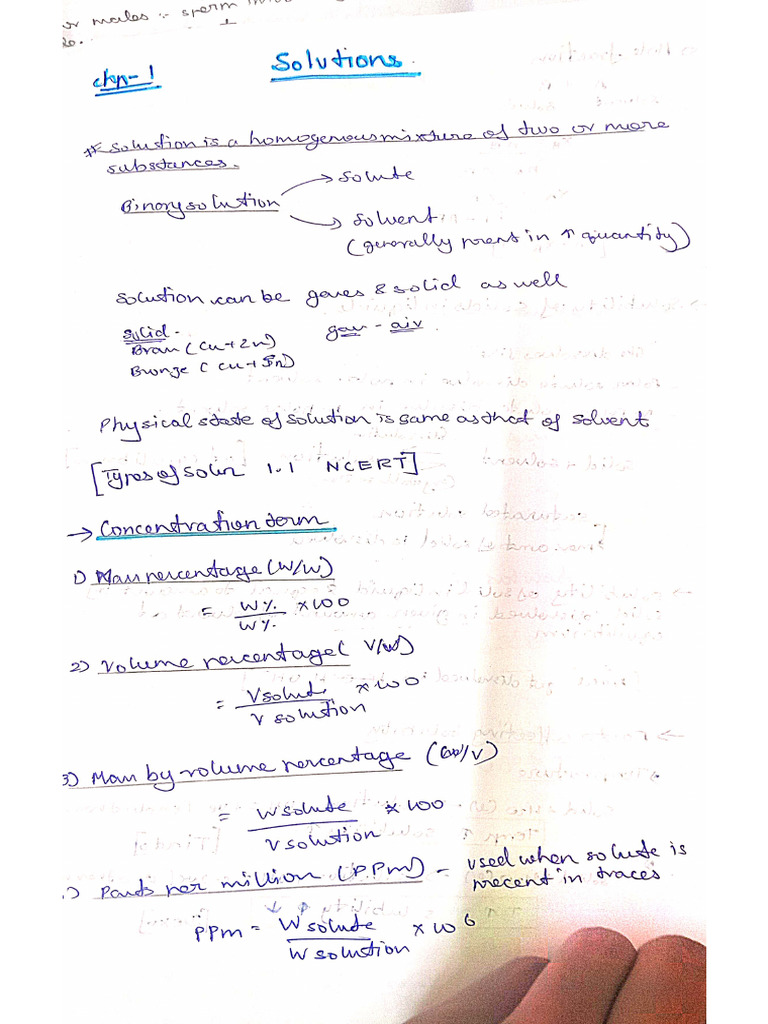 or males :- sperm
Chp-1
Solutions.
* Solustion is a homogenous mixture of two or more
substances.
Binary solution
→ Solute
→ Solvent
(generally presnt in ↑ quantity)
Solution can be gases & solid as well
Solid -
gas - air.
Brass (Cu + Zn)
Bronze (Cu + Sn)
Physical state of solution is same as that of solvent
[Types of soln 1.1 NCERT]
→ Concentration term
1) Mass percentage (W/W)
= W% / W% × 100
2) Volume percentage (
= V solute / V solution × 100
3) Mass by volume percentage (W/V)
= W solute / V solution × 100
) Parts per million (P.P.m) - used when solute is
precent in traces
PPm = W solute / W solustion × 10⁶